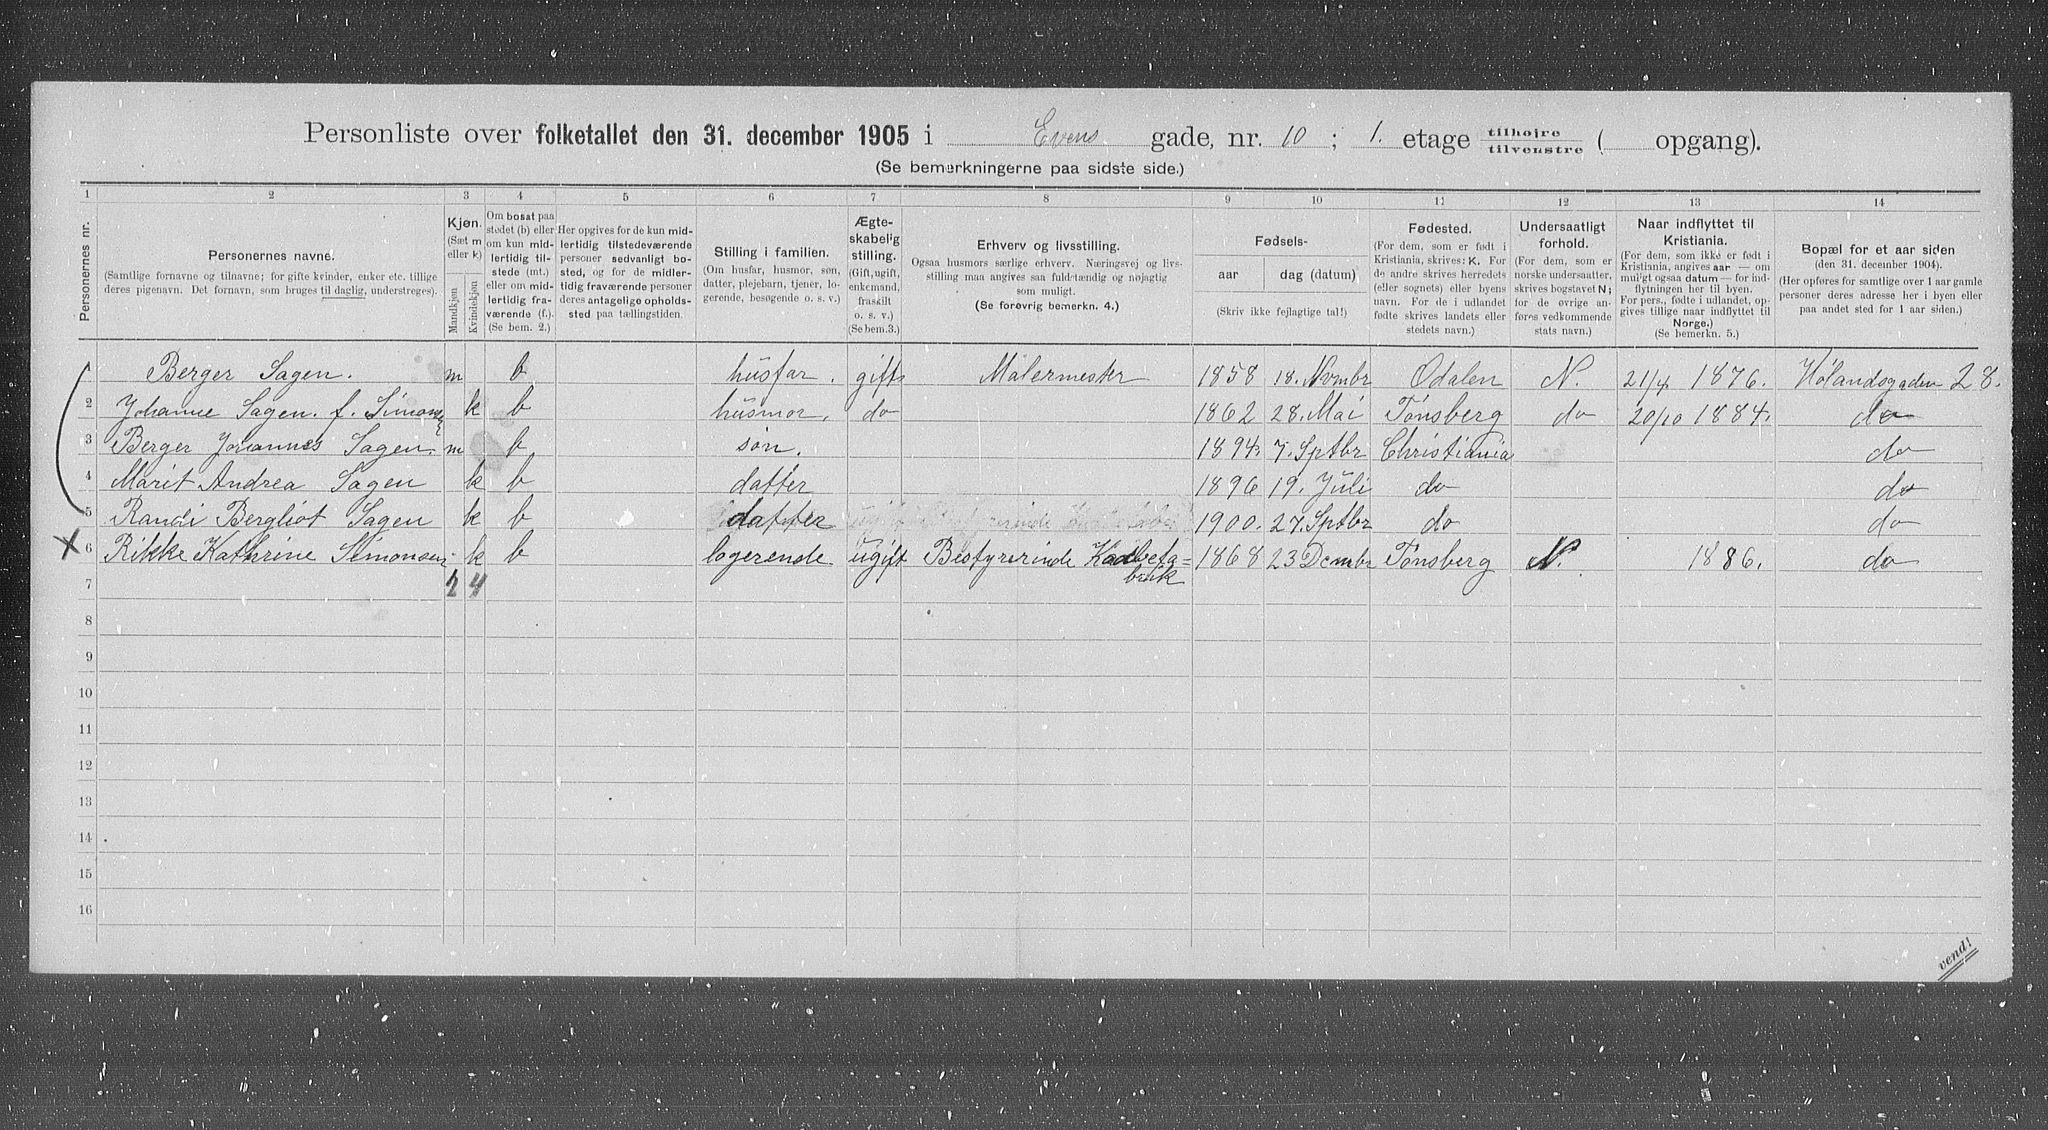 Personliste over folketallet den 31. december 1905 i Evens gade, nr. 10 ; 1. etage tilhøjre tilvenstre ( opgang).
(Se bemerkningerne paa sidste side.)
1 2 3 4 5 6 7 8 9 10 11 12 13 14
Personernes nr.
Personernes navne.
(Samtlige fornavne og tilnavne; for gifte kvinder, enker etc. tillige
deres pigenavn. Det fornavn, som bruges til daglig, understreges).
Kjøn.
(Sæt m
eller k)
Mandkjøn
Kvindekjøn
Om bosat paa
stedet (b) eller
om kun mid-
lertidig til-
stede (mt.)
eller om mid-
lertidig fra-
værende (f.)
(Se bem. 2.)
Her opgives for de kun mid-
lertidig tilstedeværende
personer sedvanligt bo-
sted, og for de midler-
tidig fraværende personer
deres antagelige opholds-
sted paa tællingstiden.
Stilling i familien.
(Om husfar, husmor, søn,
datter, plejebarn, tjener, lo-
gerende, besøgende o. s. v.)
Ægte-
skabelig
stilling.
(Gift, ugift,
enkemand,
fraskilt
o. s. v.)
(Se bem.3.)
Erhverv og livsstilling.
Ogsaa husmors særlige erhverv. Næringsvej og livs-
stilling maa angives saa fuldstændig og nøjagtig
som muligt.
(Se forøvrig bemerkn. 4.)
Fødsels-
aar dag (datum)
(Skriv ikke fejlagtige tal!)
Fødested.
(For dem, som er født i
Kristiania, skrives: K. For
de andre skrives herredets
(eller sognets) eller byens
navn. For de i udlandet
fødte skrives landets eller
stedets navn.)
Undersaatligt
forhold.
(For dem, som er
norske undersaatter,
skrives bogstavet N;
for de øvrige an-
føres vedkommende
stats navn.)
Naar indflyttet til
Kristiania.
(For dem, som ikke er født i
Kristiania, angives aar — om
muligt ogsaa datum — for ind-
flytningen her til byen.
For pers., fødte i udlandet, op-
gives tillige naar indflyttet til
Norge.)
(Se bemerkn. 5.)
Bopæl for et aar siden
(den 31. december 1904).
(Her opføres for samtlige over 1 aar gamle
personer deres adresse her i byen eller
paa andet sted for 1 aar siden.)
Berger Sagen. m b husfar. gift Malermester 1858 18. Novmbr Odalen N. 21/4 1876. Hølandsgaden 28.
2 Johanne Sagen. f. Simonsen k b husmor. do 1862 28. Mai Tønsberg do 20/10 1884. do
3 Berger Johannes Sagen. m b søn. 1894 7. Sptbr Christiania do
4 Marit Andrea Sagen k b datter 1896 19. Juli do do
5 Randi Bergliot Sagen k b datter 1900. 27. Sptbr do do
X 6 Rikke Kathrine Simonsen k b logerende ugift Bestyrerinde 1868 23 Dcmbr Tønsberg N. 1886. do
7 2 4
8
9
10
11
12
13
14
15
16
vend!